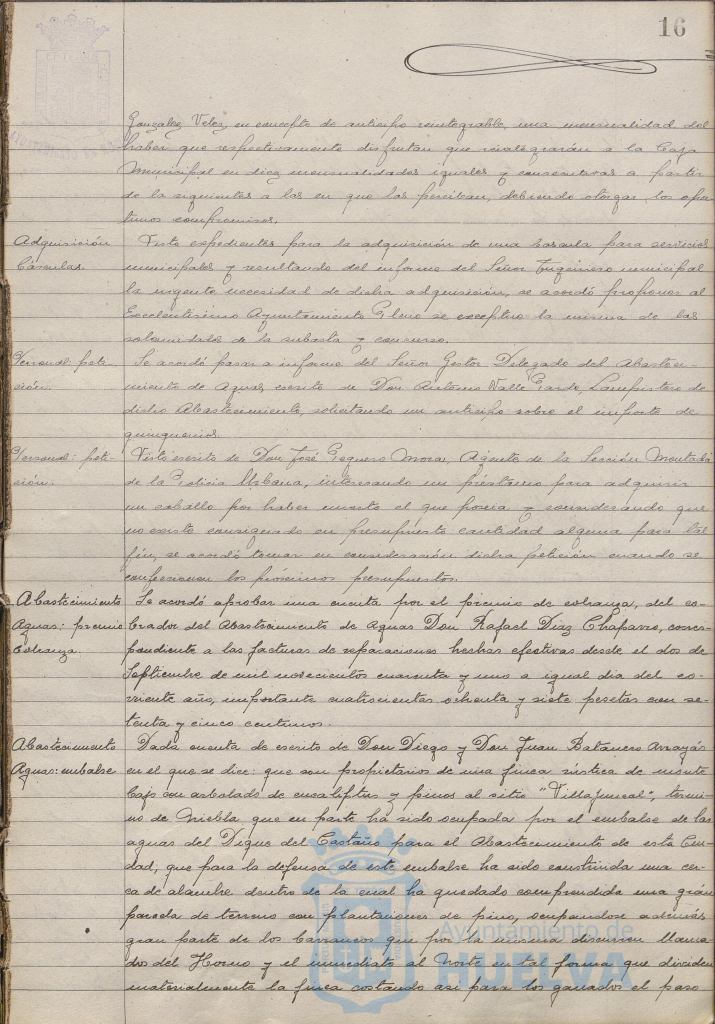 16
Gonzalez Velez, en concepto de anticipo reintegrable, una mensualidad del
haber que respectivamente disfrutan que reintegrarán a la Caja
Municipal en diez mensualidades iguales y consecutivas a partir
de la siguientes a las en que las perciban, debiendo otorgar los opor
tunos compromisos.
Adquisición
Básculas.
Visto expedientes para la adquisición de una báscula para servicios
municipales y resultando del informe del Señor Ingeniero municipal
la urgente necesidad de dicha adquisición, se acordó proponer al
Excelentísimo Ayuntamiento Pleno se exceptúe la misma de las
solemnidades de la subasta y concurso.
Personal: peti-
ción.
Se acordó pasar a informe del Señor Gestor Delegado del Abasteci-
miento de Aguas, escrito de Don Antonio Valle Garde, Lampistero de
dicho Abastecimiento, solicitando un anticipo sobre el importe de
quinquenios.
Personal: peti-
ción.
Visto escrito de Don José Peguero Mora, Agente de la Sección Montada
de la Policia Urbana, interesando un préstamo para adquirir
un caballo por haber muerto el que poseia y considerando que
no existe consignada en presupuesto cantidad alguna para tal
fin, se acordó tomar en consideración dicha petición cuando se
confeccionen los próximos presupuestos.
Abastecimiento
Aguas: premio
Cobranza.
Se acordó aprobar una cuenta por el premio de cobranza, del co-
brador del Abastecimiento de Aguas Don Rafael Díaz Chaparro, corres-
pondiente a las facturas de reparaciones hechas efectivas desde el dos de
Septiembre de mil novecientos cuarenta y uno a igual dia del co-
rriente año, importante cuatrocientas ochenta y siete pesetas con se-
tenta y cinco centimos.
Abastecimiento
Aguas: embalse
Dada cuenta de escrito de Don Diego y Don Juan Batanero Arrayás
en el que se dice: que son propietarios de una finca rústica de monte
bajo con arbolado de eucaliptus y pinos al sitio "Villajuncal", termi-
no de Niebla que en parte ha sido ocupada por el embalse de las
aguas del Dique del Castaño para el Abastecimiento de esta Ciu-
dad; que para la defensa de este embalse ha sido construida una cer-
ca de alambre dentro de la cual ha quedado comprendida una gran
parcela de terreno con plantaciones de pino, ocupandose además
gran parte de los barrancos que por la misma discurren llama-
dos del Horno y el inmediato al Norte en tal forma que dividen
materialmente la finca cortando asi para los ganados el paso
Ayuntamiento de
HUELVA